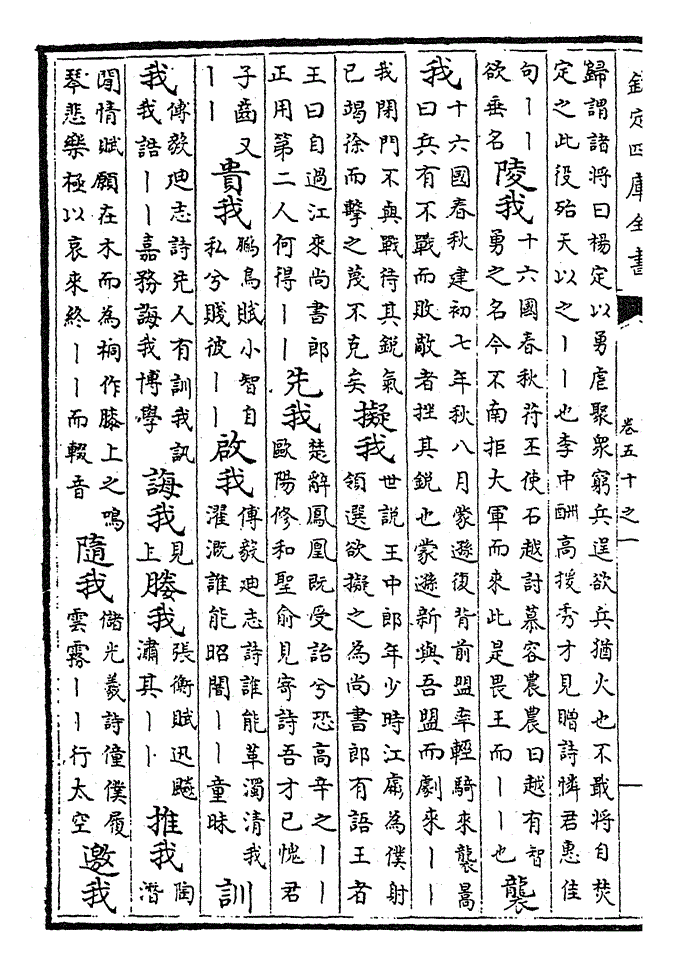 欽定四庫全書
卷五十之一
歸謂諸將曰楊定以勇虐聚衆窮兵逞欲兵猶火也不戢將自焚
定之此役殆天以之丨丨也李中酬高援秀才見贈詩憐君惠佳
句丨丨
欲垂名
陵我
十六國春秋苻丕使石越討慕容農農曰越有智
勇之名今不南拒大軍而來此是畏王而丨丨也
襲
我
十六國春秋建初七年秋八月蒙遜復背前盟率輕騎來襲暠
曰兵有不戰而敗敵者挫其銳也蒙遜新與吾盟而劇來丨丨
我閉門不與戰待其銳氣
已竭徐而擊之蔑不克矣
擬我
世說王中郎年少時江虨為僕射
領選欲擬之為尚書郎有語王者
王曰自過江來尚書郎
正用第二人何得丨丨
先我
楚辭鳳凰既受詒兮恐高辛之丨丨
歐陽修和聖俞見寄詩吾才已愧君
子齒又
丨丨
貴我
鵩鳥賦小智自
私兮賤彼丨丨
啟我
傅毅迪志詩誰能革濁清我
濯溉誰能昭闇丨丨童昧
訓
我
傅毅迪志詩先人有訓我訊
我誥丨丨嘉務誨我博學
誨我
見
上
媵我
張衡賦迅飈
潚其丨丨
推我
陶
潛
閒情賦願在木而為桐作膝上之鳴
琴悲樂極以哀來終丨丨而輟音
隨我
儲光羲詩僮僕履
雲霧丨丨行太空
邀我